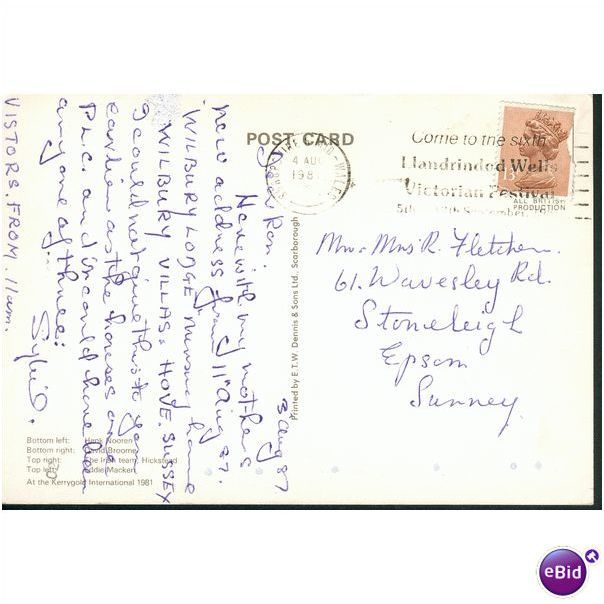 POST CARD
4 AU
198
Come to the sixth
Llandrindod Wells
Victorian Festival
ALL BRITISH
PRODUCTION
3 Aug 87
Dear Ron:
Herewith my mothers
new address from 11th Aug 87.
WILBURY LODGE Nursing Home
WILBURY VILLAS. HOVE. SUSSEX
I could not give this to you
earlier as the houses are
P.L.C. and could have been
anyone of three:
Sylvia.
VISTORS. FROM. 11am.
Printed by E.T.W. Dennis & Sons Ltd., Scarborough
Mr. & Mrs R. Fletcher.
61. Wavesley Rd.
Stoneleigh
Epsom
Surrey.
Bottom left: Henk Nooren
Bottom right: David Broome
Top right: The Irish team, Hickstead
Top left: Eddie Macken
At the Kerrygold International 1981
eBid